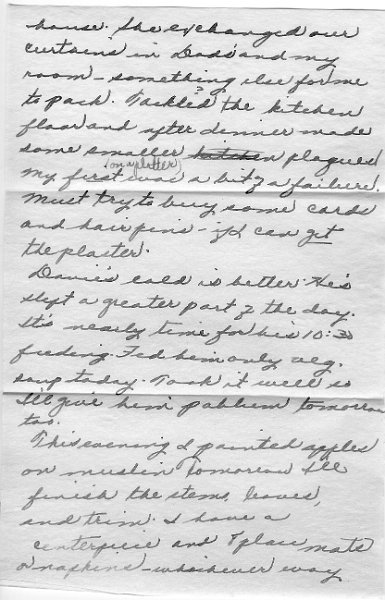 house. She exchanged our
curtains in Dad's and my
room – something else for me
to pack. Tackled the kitchen
floor and after dinner made
some smaller plaques
(on a platter)
My first was a bit of a failure.
Must try to buy some cards
and hair pins – if I can get
the plaster.
Davie's cold is better. He's
slept a greater part of the day.
It's nearly time for his 10:30
feeding. Fed him only veg.
soup today. Took it well so
I'll give him pablum tomorrow
too.
This evening I painted apples
on muslin tomorrow I'll
finish the stems, leaves,
and trim. I have a
centerpiece and 4 place mats
or napkins – whichever way